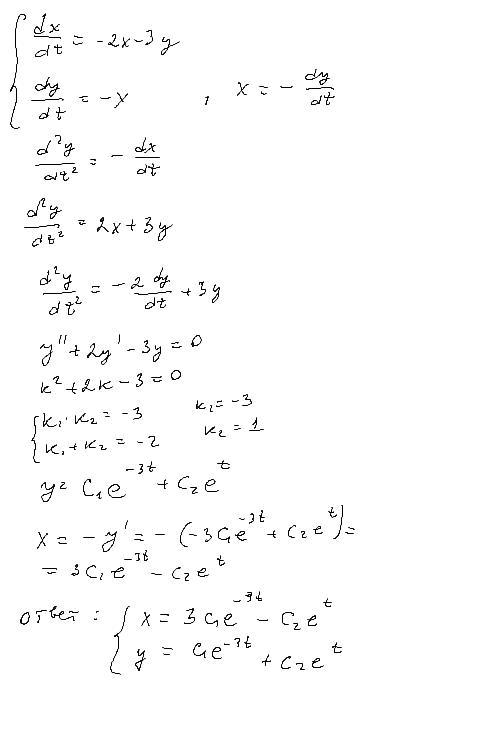 { dx/dt = -2x-3y
dy/dt = -x , x = - dy/dt
d²y/dt² = - dx/dt
d²y/dt² = 2x+3y
d²y/dt² = -2 dy/dt +3y
y''+2y'-3y=0
k²+2k-3=0
{ k₁·k₂ = -3 k₁=-3
k₁+k₂ = -2 k₂=1
y= C₁e^-3t + C₂e^t
x = -y' = -(-3C₁e^-3t + C₂e^t)=
= 3C₁e^-3t - C₂e^t
ответ : { x = 3C₁e^-3t - C₂e^t
y = C₁e^-3t + C₂e^t